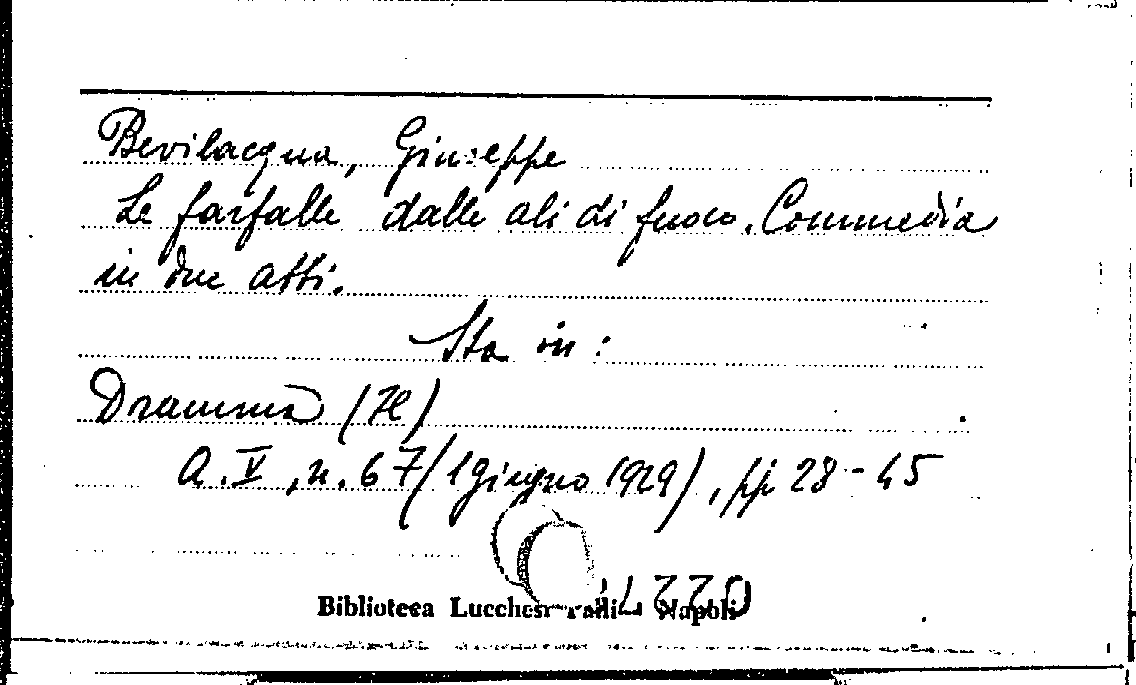 Bevilacqua, Giuseppe
Le farfalle dalle ali di fuoco. Commedia
in due atti.
Sta in:
Dramma (Il)
A. V, n. 67 (1 giugno 1929), pp 28-45
Biblioteca Lucchesi Palli - Napoli